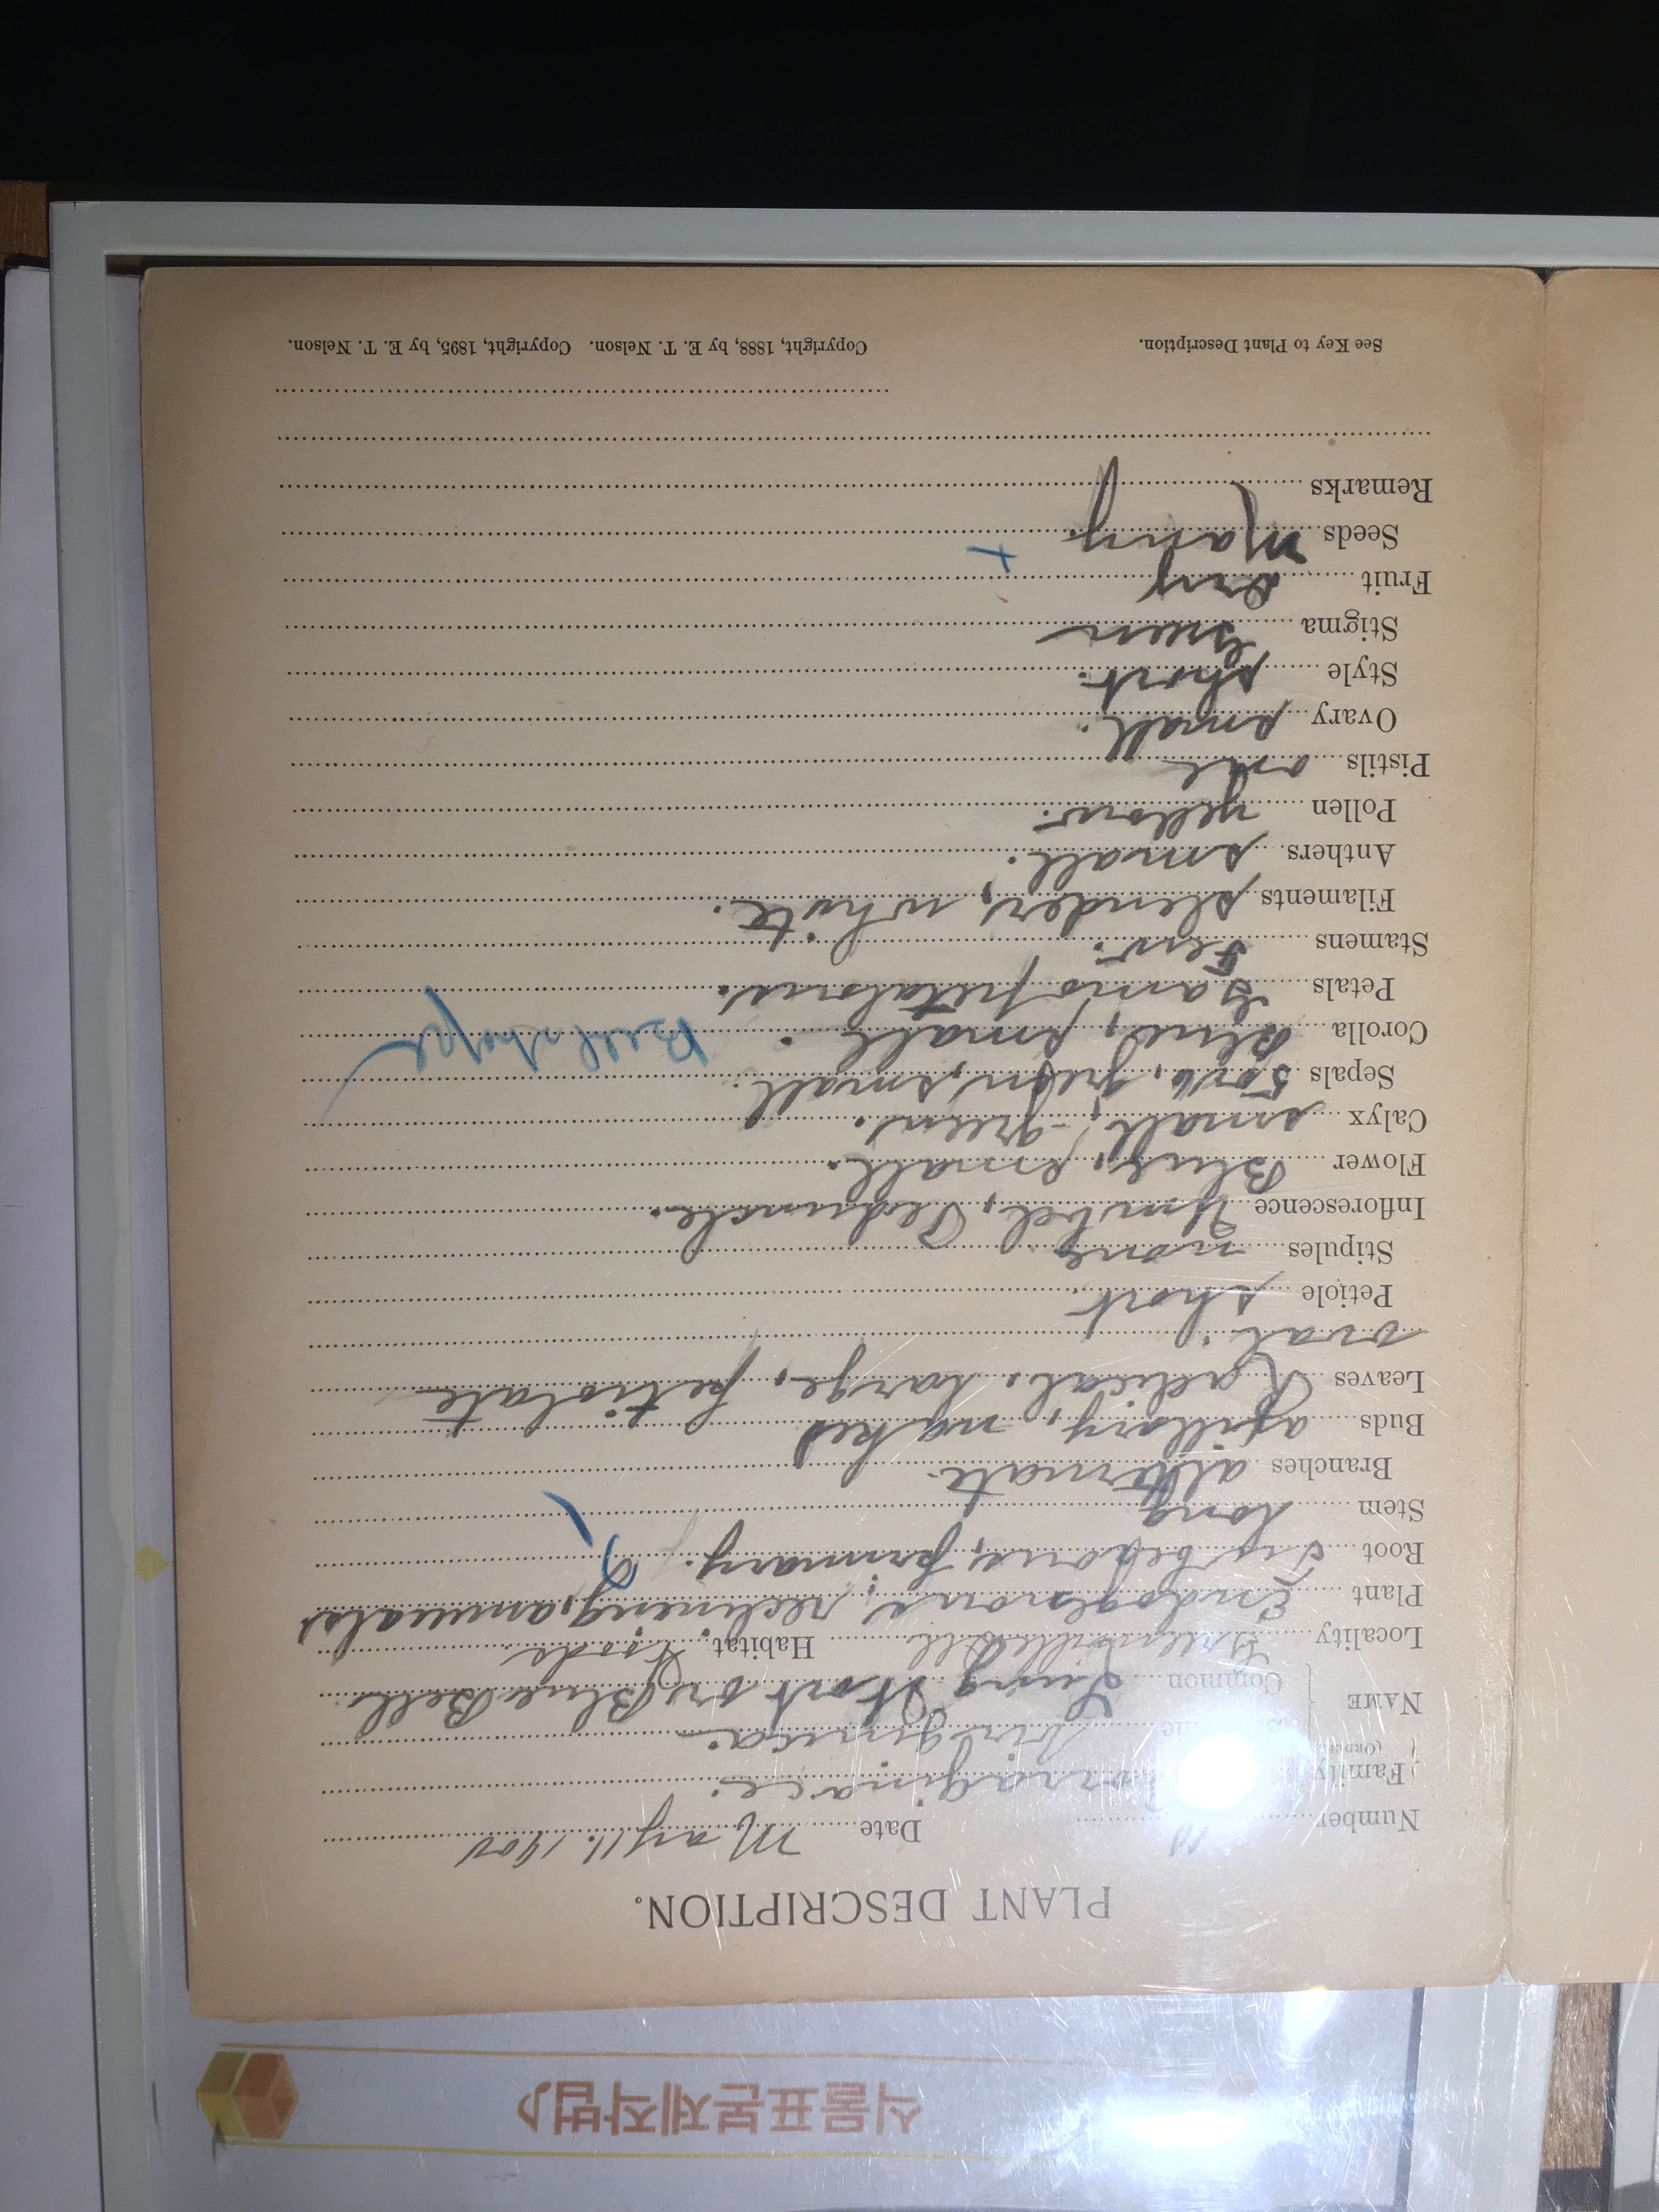 식물표본제작법♪
PLANT DESCRIPTION.
Number 11 Date May 11. 1900
Family Borraginace.
(ORDER)
Virginica.
NAME Common Lung Wort or Blue Bell
Locality Greenville Ill. Habitat Woods
Plant Endogenous, reclining, annual
Root primary.
Stem Long
Branches alternate.
Buds axillary, naked
Leaves Radical, Large, petiolate
oval.
Petiole short
Stipules none
Inflorescence Umbel, Peduncle.
Flower Blue, small.
Calyx small, green.
Sepals 5 or 6, green, small.
Corolla Blue, small. Bell shape
Petals Gamopetalous.
Stamens Few.
Filaments slender, white.
Anthers small.
Pollen yellow.
Pistils one
Ovary small.
Style short.
Stigma Green
Fruit Dry +
Seeds Many.
Remarks
See Key to Plant Description. Copyright, 1888, by E. T. Nelson. Copyright, 1895, by E. T. Nelson.